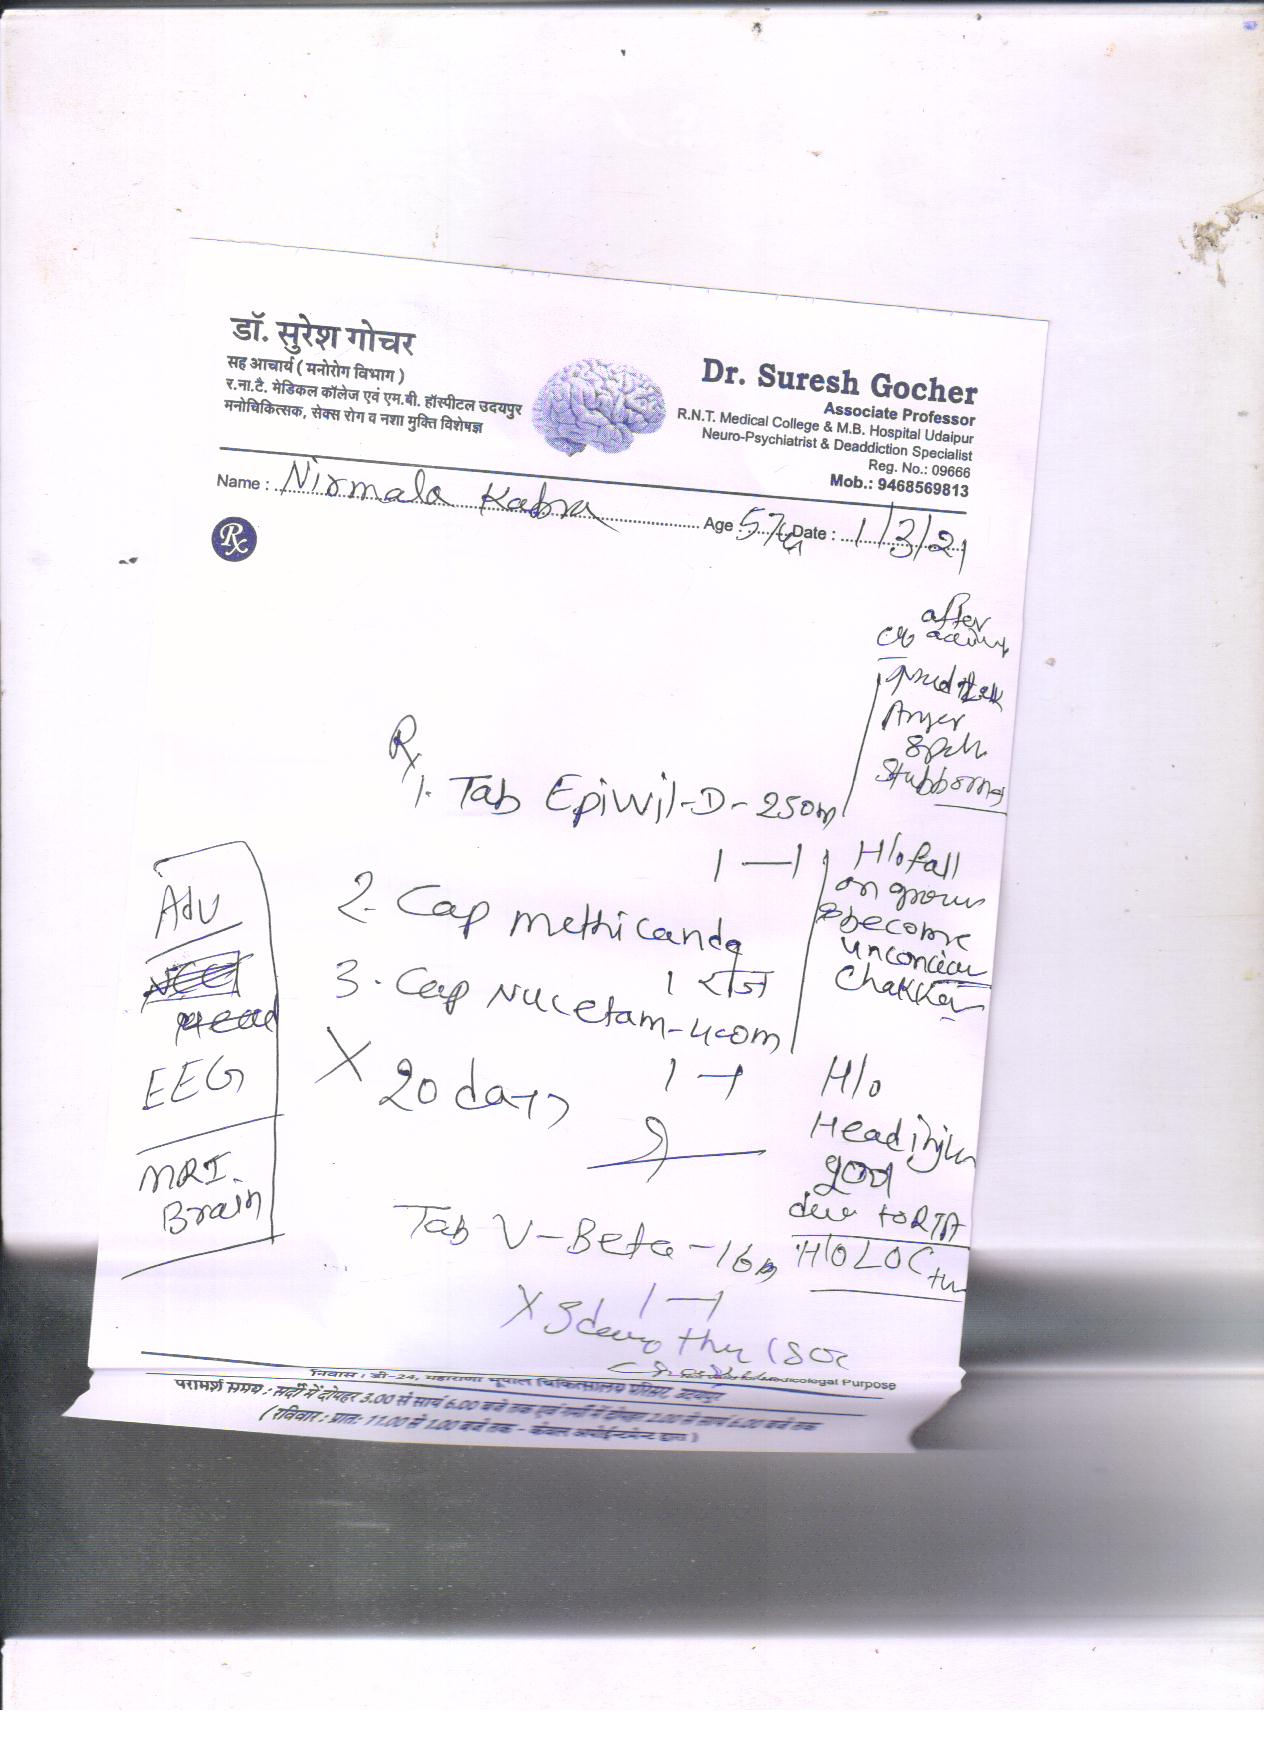 डॉ. सुरेश गोचर
सह आचार्य ( मनोरोग विभाग )
र.ना.टै. मेडिकल कॉलेज एवं एम.बी. हॉस्पीटल उदयपुर
मनोचिकित्सक, सेक्स रोग व नशा मुक्ति विशेषज्ञ
Dr. Suresh Gocher
Associate Professor
R.N.T. Medical College & M.B. Hospital Udaipur
Neuro-Psychiatrist & Deaddiction Specialist
Reg. No.: 09666
Mob.: 9468569813
Name : Nirmala Kabra Age 57 Date : 1/3/21
Rx
after
Anger
Stubborness
Rx
1. Tab Epiwil-D-250m
1 — 1
2. Cap methicanda
1 रोज
3. Cap Nucetam-400m
1 — 1
X 20 days
Adv
Head
EEG
MRI.
Brain
H/o fall
on groun
become
unconciou
Chakker
H/o
Head injur
due to RTA
H/O LOC
Tab V-Beta-16m
1 — 1
X 3 days
निवास : डी-24, महाराणा भूपाल चिकित्सालय परिसर, उदयपुर
Purpose
परामर्श समय : सर्दी में दोपहर 3.00 से सायं 6.00 बजे तक एवं गर्मी में दोपहर 2.00 से सायं 6.00 बजे तक
( रविवार : प्रातः 11.00 से 1.00 बजे तक - केवल अपोईन्टमेन्ट द्वारा )